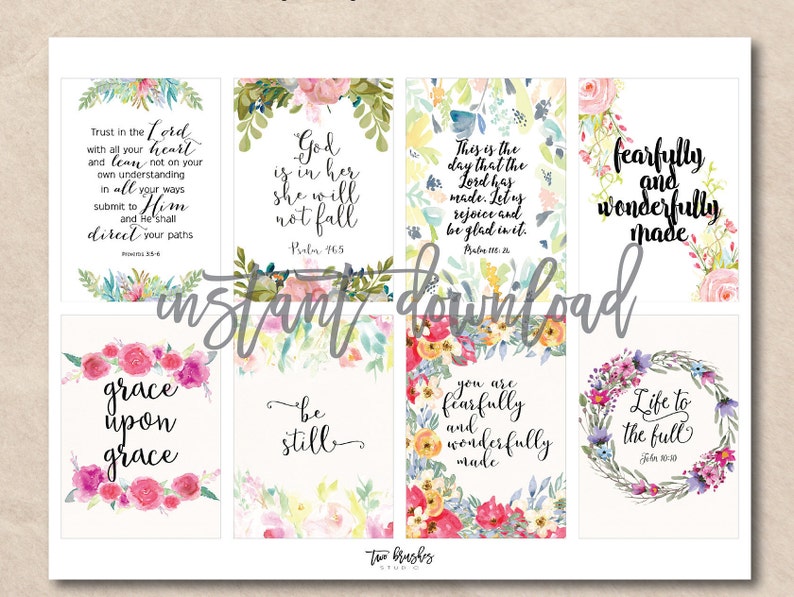 Trust in the Lord
with all your heart
and lean not on your
own understanding
in all your ways
submit to Him
and He shall
direct your paths
Proverbs 3:5-6
God
is in her
she will
not fall
-Psalm 46:5
This is the
day that the
Lord has
made. Let us
rejoice and
be glad in it.
Psalm 118: 24
fearfully
and
wonderfully
made
instant download
grace
upon
grace
be
still
you are
fearfully
and
wonderfully
made
Life to
the full
John 10:10
two brushes
STUDIO